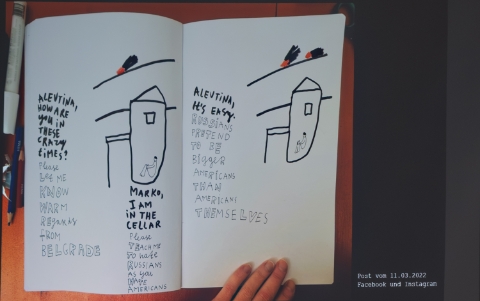 ALEVTINA,
HOW ARE
YOU IN
THESE
CRAZY
TIMES?
Please
LET ME
KNOW
WARM
Regards
FROM
BELGRADE
MARKO,
I AM
IN THE
CELLAR
Please
TEACH ME
TO hate
RUSSIANS
AS you
HATE
AMERICANS
ALEVTINA,
It's EASY.
RUSSIANS
PRETEND
TO BE
BIGGER
AMERICANS
THAN
AMERICANS
THEMSELVES
Post vom 11.03.2022
Facebook und Instagram